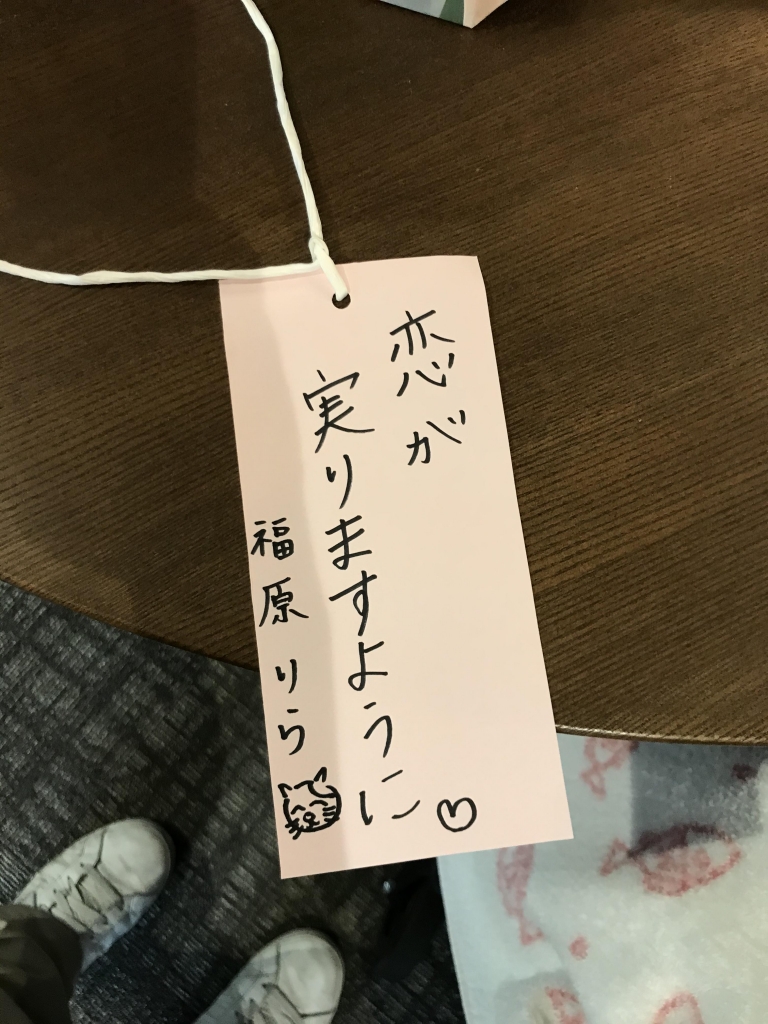 恋が
実りますように
福原りら